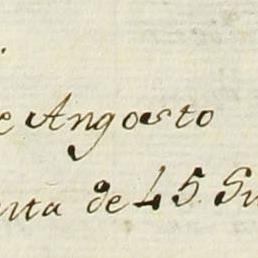 e Angosto
nta de 45 Su